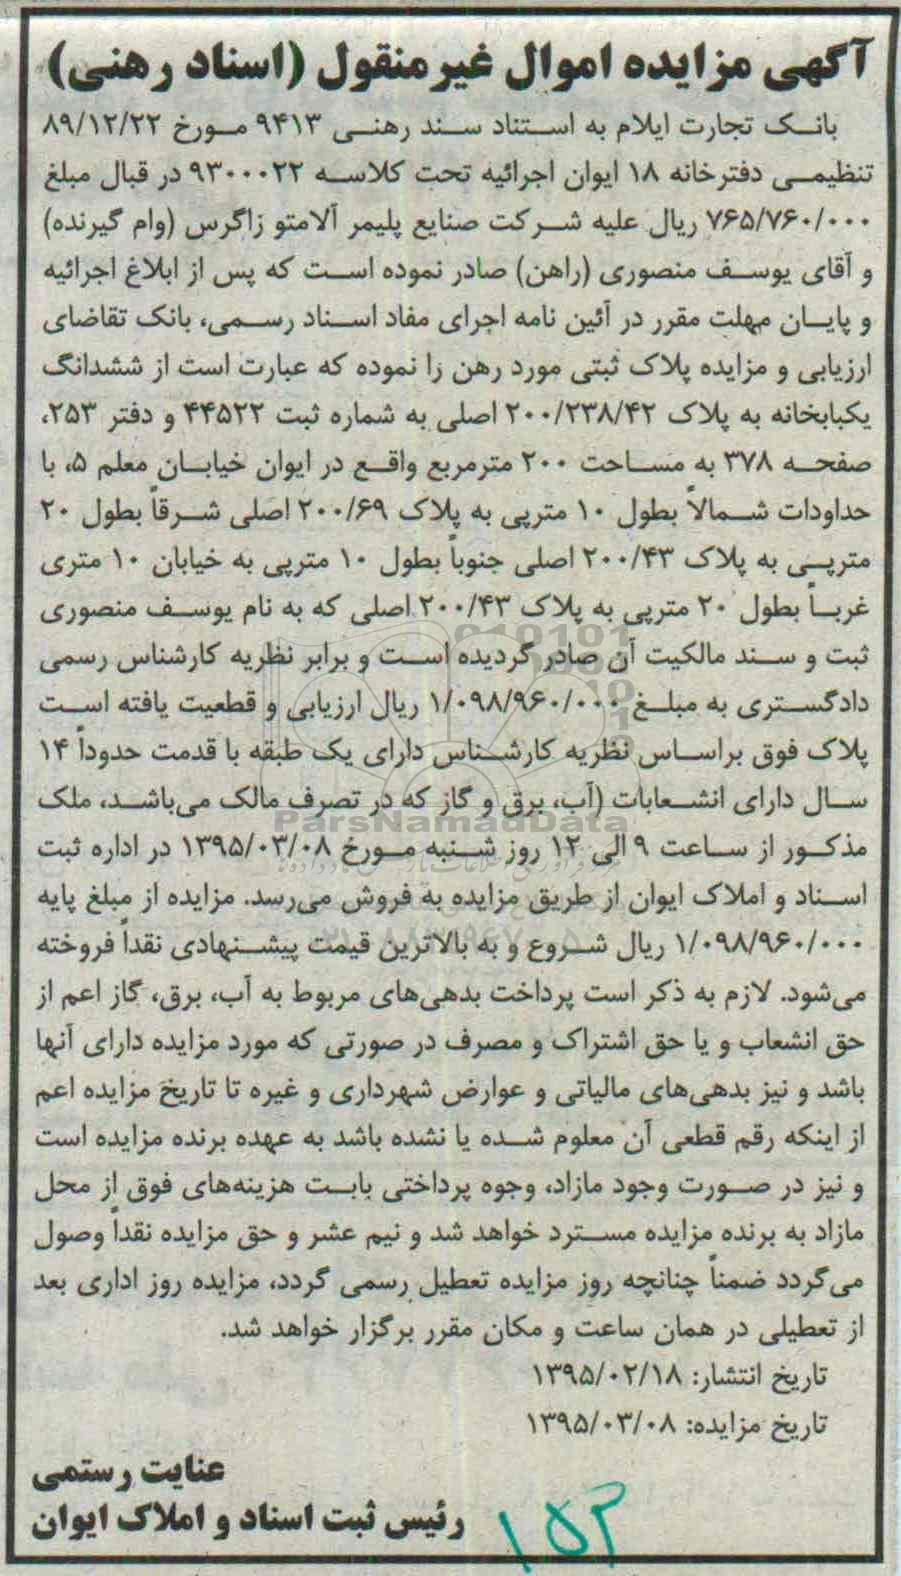 آگهی مزایده اموال غیرمنقول (اسناد رهنی)
بانک تجارت ایلام به استناد سند رهنی ۹۴۱۳ مورخ ۸۹/۱۲/۲۲
تنظیمی دفترخانه ۱۸ ایوان اجرائیه تحت کلاسه ۹۳۰۰۰۲۲ در قبال مبلغ
۷۶۵/۷۶۰/۰۰۰ ریال علیه شرکت صنایع پلیمر آلامتو زاگرس (وام گیرنده)
و آقای یوسف منصوری (راهن) صادر نموده است که پس از ابلاغ اجرائیه
و پایان مهلت مقرر در آئین نامه اجرای مفاد اسناد رسمی، بانک تقاضای
ارزیابی و مزایده پلاک ثبتی مورد رهن را نموده که عبارت است از ششدانگ
یکبابخانه به پلاک ۲۰۰/۲۳۸/۴۲ اصلی به شماره ثبت ۴۴۵۲۲ و دفتر ۲۵۳،
صفحه ۳۷۸ به مساحت ۲۰۰ مترمربع واقع در ایوان خیابان معلم ۵، با
حداودات شمالاً بطول ۱۰ مترپی به پلاک ۲۰۰/۶۹ اصلی شرقاً بطول ۲۰
مترپی به پلاک ۲۰۰/۴۳ اصلی جنوباً بطول ۱۰ مترپی به خیابان ۱۰ متری
غرباً بطول ۲۰ مترپی به پلاک ۲۰۰/۴۳ اصلی که به نام یوسف منصوری
ثبت و سند مالکیت آن صادر گردیده است و برابر نظریه کارشناس رسمی
دادگستری به مبلغ ۱/۰۹۸/۹۶۰/۰۰۰ ریال ارزیابی و قطعیت یافته است
پلاک فوق براساس نظریه کارشناس دارای یک طبقه با قدمت حدوداً ۱۴
سال دارای انشعابات (آب، برق و گاز که در تصرف مالک می‌باشد، ملک
ParsNamadData
مذکور از ساعت ۹ الی ۱۲ روز شنبه مورخ ۱۳۹۵/۰۳/۰۸ در اداره ثبت
اسناد و املاک ایوان از طریق مزایده به فروش می‌رسد. مزایده از مبلغ پایه
۱/۰۹۸/۹۶۰/۰۰۰ ریال شروع و به بالاترین قیمت پیشنهادی نقداً فروخته
می‌شود. لازم به ذکر است پرداخت بدهی‌های مربوط به آب، برق، گاز اعم از
حق انشعاب و یا حق اشتراک و مصرف در صورتی که مورد مزایده دارای آنها
باشد و نیز بدهی‌های مالیاتی و عوارض شهرداری و غیره تا تاریخ مزایده اعم
از اینکه رقم قطعی آن معلوم شده یا نشده باشد به عهده برنده مزایده است
و نیز در صورت وجود مازاد، وجوه پرداختی بابت هزینه‌های فوق از محل
مازاد به برنده مزایده مسترد خواهد شد و نیم عشر و حق مزایده نقداً وصول
می‌گردد ضمناً چنانچه روز مزایده تعطیل رسمی گردد، مزایده روز اداری بعد
از تعطیلی در همان ساعت و مکان مقرر برگزار خواهد شد.
تاریخ انتشار: ۱۳۹۵/۰۲/۱۸
تاریخ مزایده: ۱۳۹۵/۰۳/۰۸
عنایت رستمی
رئیس ثبت اسناد و املاک ایوان
۱۵۳